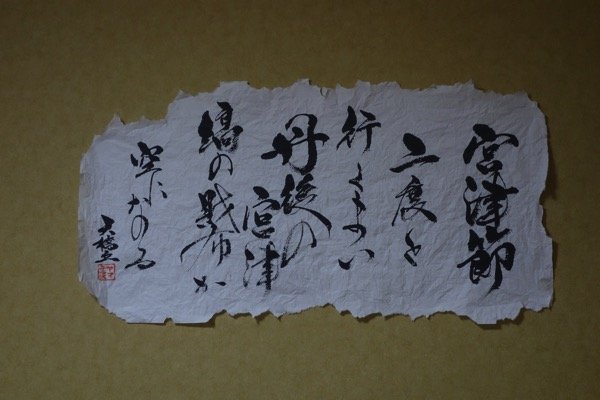 宮津節
二度と
行くまい
丹後の
宮津
縞の財布か
空になる
天橋立